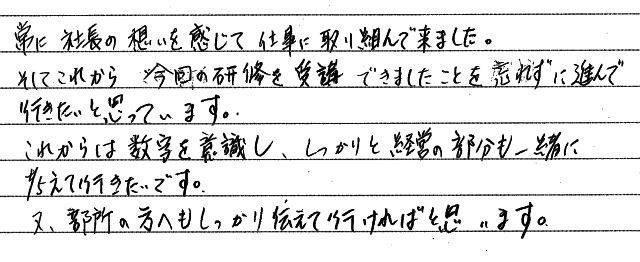 常に社長の想いを感じて仕事に取り組んで来ました。
そしてこれから今回の研修を受講できましたことを忘れずに進んで
行きたいと思っています。
これからは数字を意識し、しっかりと経営の部分も一緒に
考えて行きたいです。
又、部所の方へもしっかり伝えて行ければと思います。